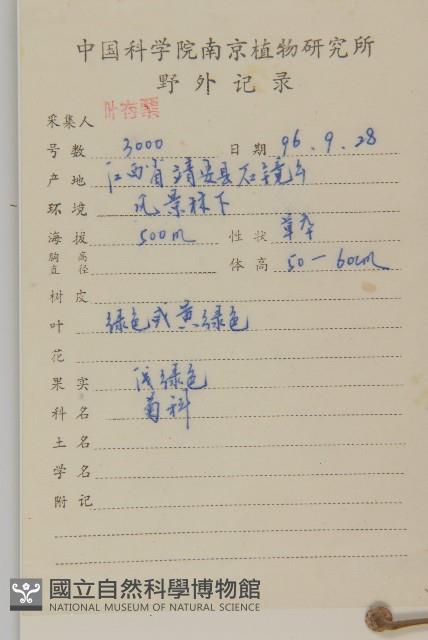 中国科学院南京植物研究所
野外记录
采集人
号数 3000 日期 96.9.28
产地 江西省靖安县石镜山
环境 风景林下
海拔 500m 性状 草本
胸高直径 体高 50—60cm
树皮
叶 绿色或黄绿色
花
果实 浅绿色
科名 菊科
土名
学名
附记
國立自然科學博物館
NATIONAL MUSEUM OF NATURAL SCIENCE